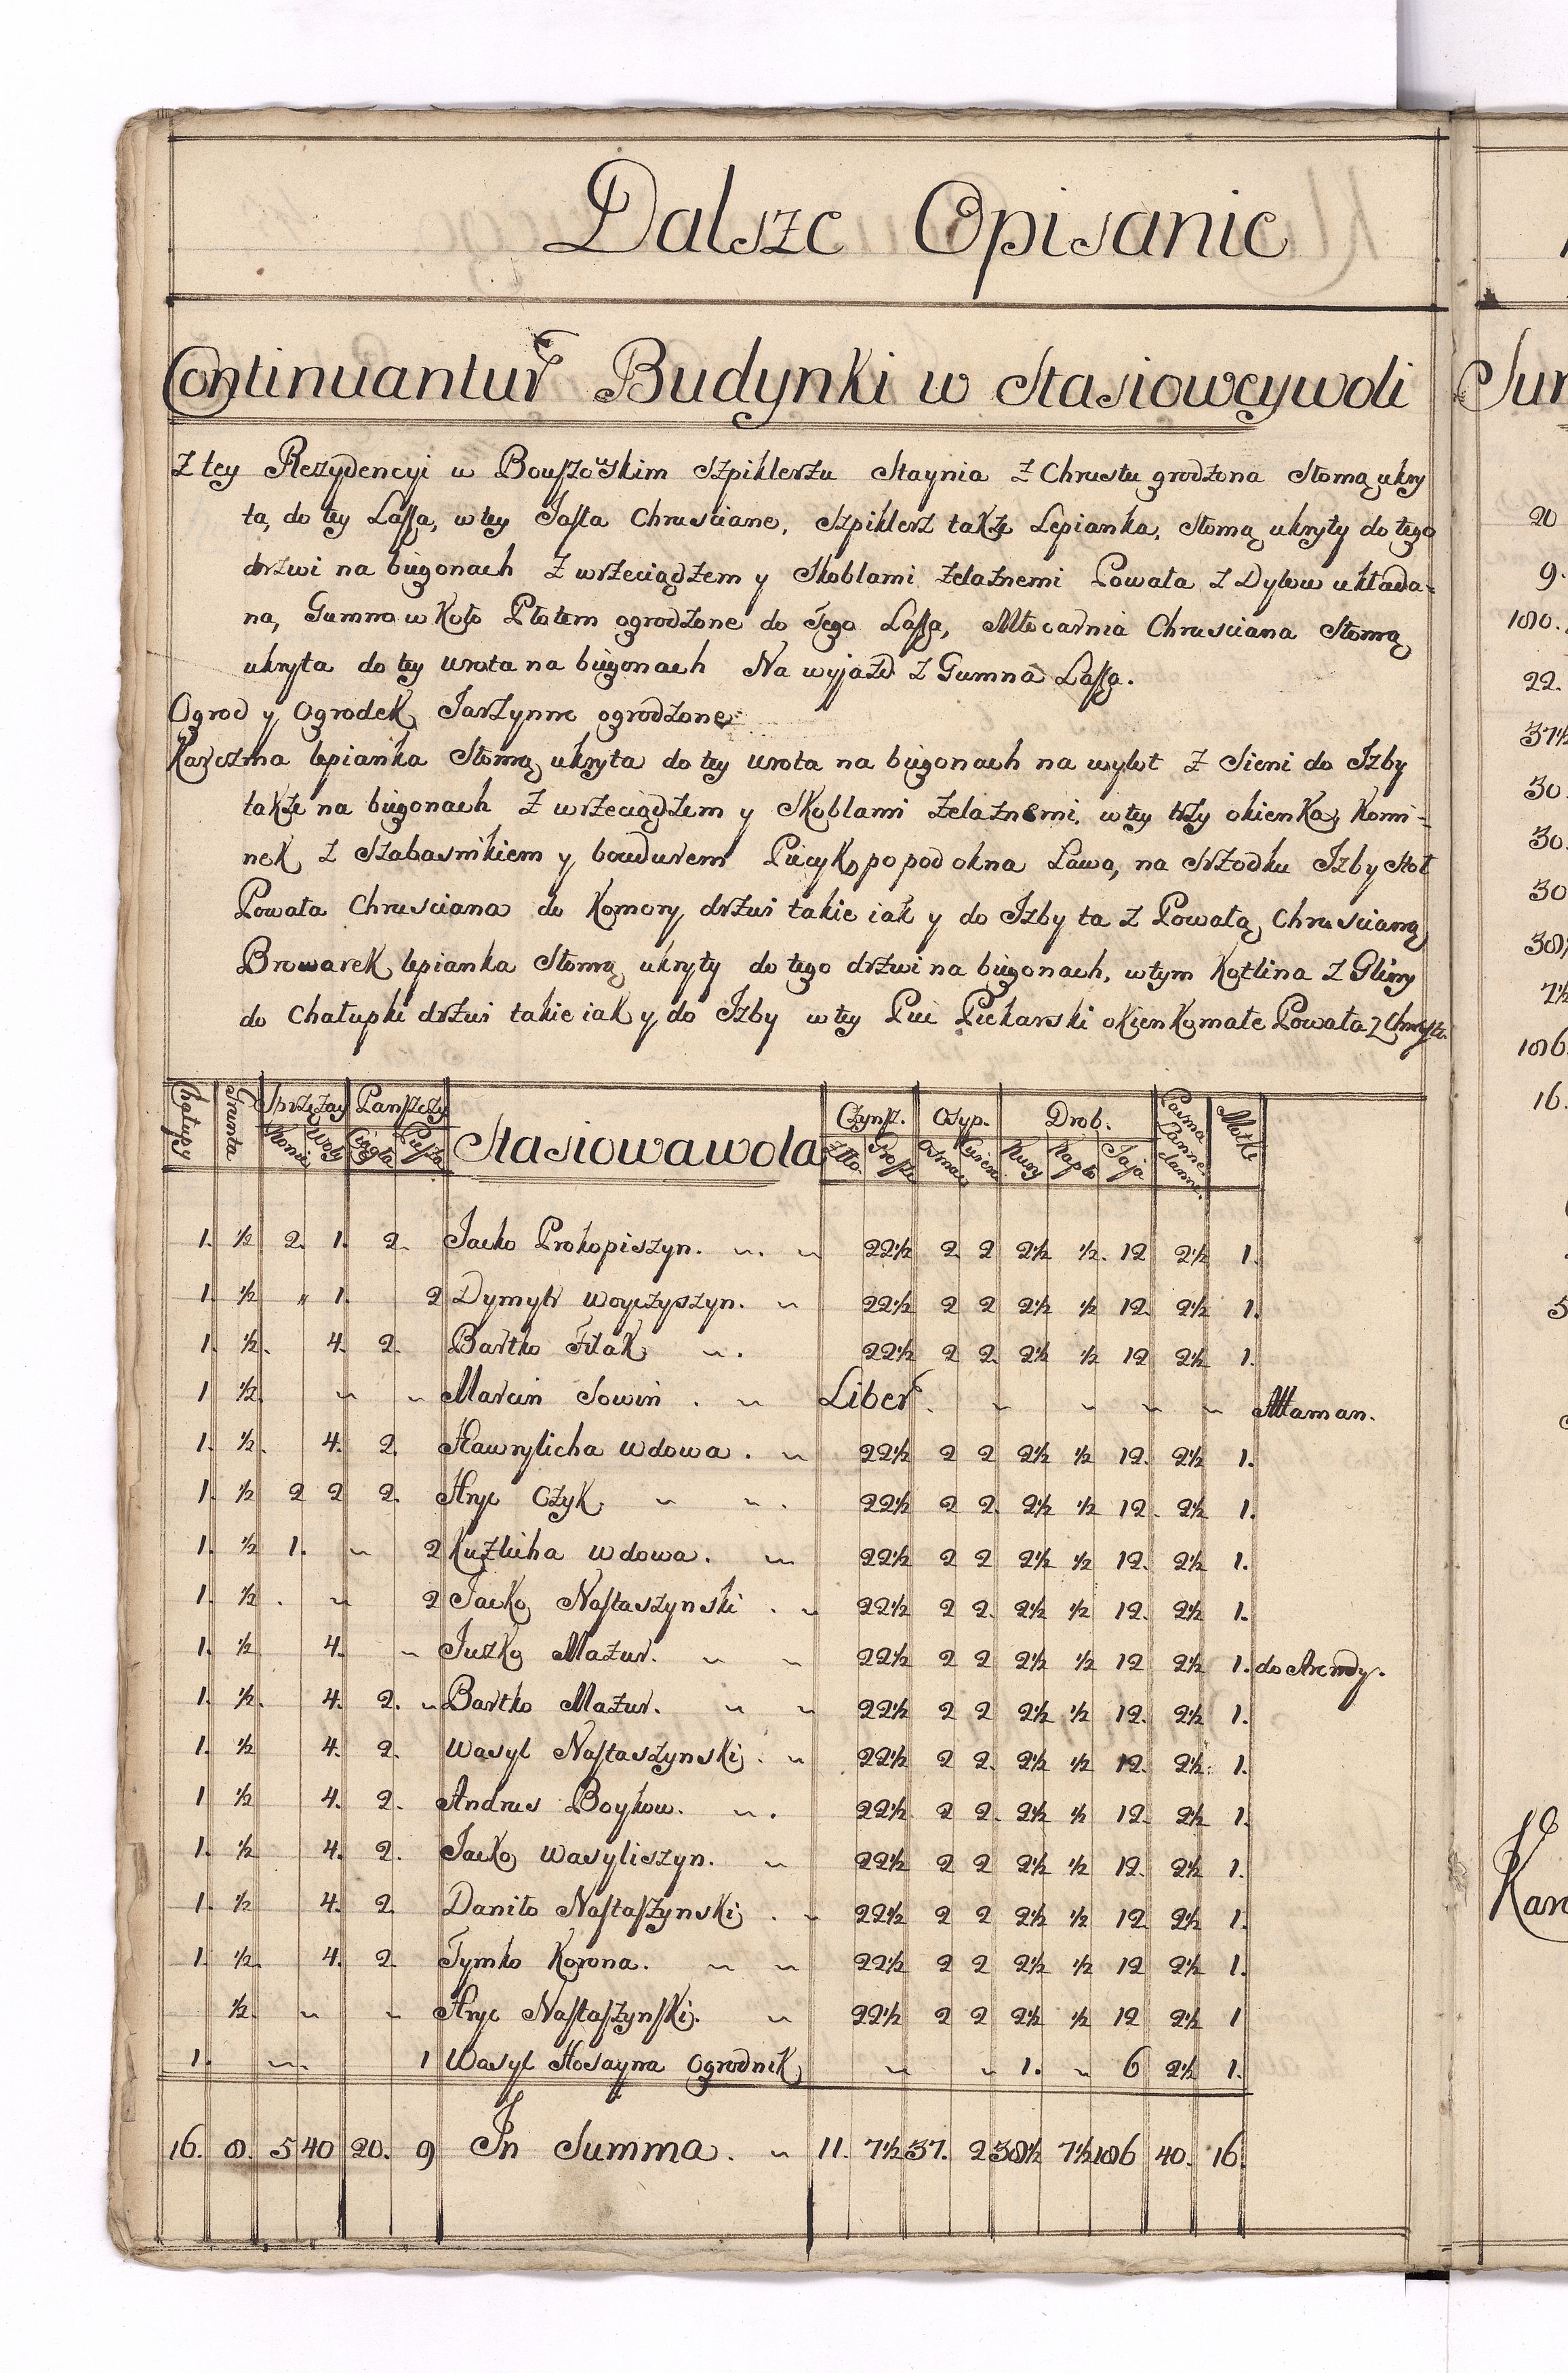 Dalsze Opisanie
Continuantur Budynki w Stasiowcywoli
Z tey Rezydencyi w Bouszowskim Szpiklerzu Staynia z Chrustu grodzona Stomą ukry
ta, do tey Lassa, w tey Jasla Chrusciane, Szpiklerz takze Lepianka, Stomą ukryty do tego
drzwi na biegonach z wrzeciądzem y Skoblami zelaznemi Powala z Dylow uklada-
na, Gumno w Koło Płotem ogrodzone do Tego Lassa, Młocarnia Chrusciana Stomą
ukryta do tey wrota na biegonach Na wyjazd z Gumna Lassa.
Ogrod y Ogrodek Jarzynne ogrodzone
Karczma lepianka Stomą ukryta do tey wrota na biegonach na wylot z Sieni do Izby
takze na biegonach z wrzeciądzem y Skoblami zelaznemi, w tey trzy okienka, Komi-
nek z Szabasnikiem y bowdurem Piecyk, po pod okna Lawa, na Srzodku Izby Stoł
Powała Chrusciana do Komory drzwi takie iak y do Izby ta z Powałą Chruscianą
Browarek lepianka Stomą ukryty do tego drzwi na biegonach, w tym Kotlina z Gliny
do Chałupki drzwi takie iak y do Izby w tey Piec Piekarski okienko małe Powała z Chrustu
Chałupy Grunta Sprzężay Panszczy Stasiowawola Czynsz. Osyp. Drob. Motki
Konie Woły Ciągła Piesza Zło. Grosze Kury Kapło Jaja
1. ½ 2. 1. 2. Jacko Prokopiszyn. 22½ 2 2 2½ ½. 12 2½ 1.
1. ½ " 1. 2 Dymytr Woyczyszyn. 22½ 2 2 2½ ½ 12. 2½ 1.
1. ½. 4. 2. Bartko Filak 22½ 2 2. 2½ ½ 12 2½ 1.
1 ½. Marcin Sowin. Liber. Attaman.
1. ½. 4. 2. Hawrylicha Wdowa. 22½ 2 2 2½ ½ 12. 2½ 1.
1. ½ 2 2 2. Hryc Czyk 22½ 2 2. 2½ ½ 12. 2½ 1.
1. ½ 1. 2 Kuzlicha Wdowa. 22½ 2 2 2½ ½ 12. 2½ 1.
1. ½. 2 Jacko Nastaszynski. 22½ 2 2. 2½ ½ 12. 2½ 1.
1. ½ 4. Juzko Mazur. 22½ 2 2 2½ ½ 12 2½ 1. do Arendy.
1. ½. 4. 2. Bartko Mazur. 22½ 2 2 2½ ½ 12. 2½ 1.
1. ½ 4. 2. Wasyl Nastaszynski. 22½ 2 2. 2½ ½ 12. 2½ 1.
1 ½ 4. 2. Andrus Boykow. 22½ 2 2. 2½ ½ 12. 2½ 1.
1. ½ 4. 2. Jacko Wasyliszyn. 22½ 2 2 2½ ½ 12. 2½ 1.
1. ½ 4. 2 Daniło Nastaszynski. 22½ 2 2 2½ ½ 12 2½ 1.
1. ½. 4. 2 Tymko Korona. 22½ 2 2 2½ ½ 12 2½ 1.
½. Hryc Nastaszynski. 22½ 2 2 2½ ½ 12 2½ 1
1. 1 Wasyl Hosayna Ogrodnik 1. 6 2½ 1.
16. 8. 5 40 20. 9 In Summa. 11. 7½ 37. 2 38½ 7½ 186 40. 16.
Sur
20
9.
180.
22.
37½
30.
30.
30
38½
7½
186.
16.
Kar